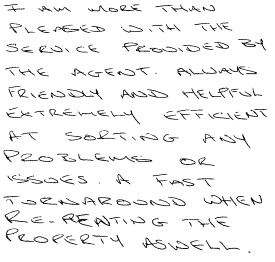 I AM MORE THAN
PLEASED WITH THE
SERVICE PROVIDED BY
THE AGENT. ALWAYS
FRIENDLY AND HELPFUL
EXTREMELY EFFICIENT
AT SORTING ANY
PROBLEMS OR
ISSUES. A FAST
TURNAROUND WHEN
RE-RENTING THE
PROPERTY ASWELL.